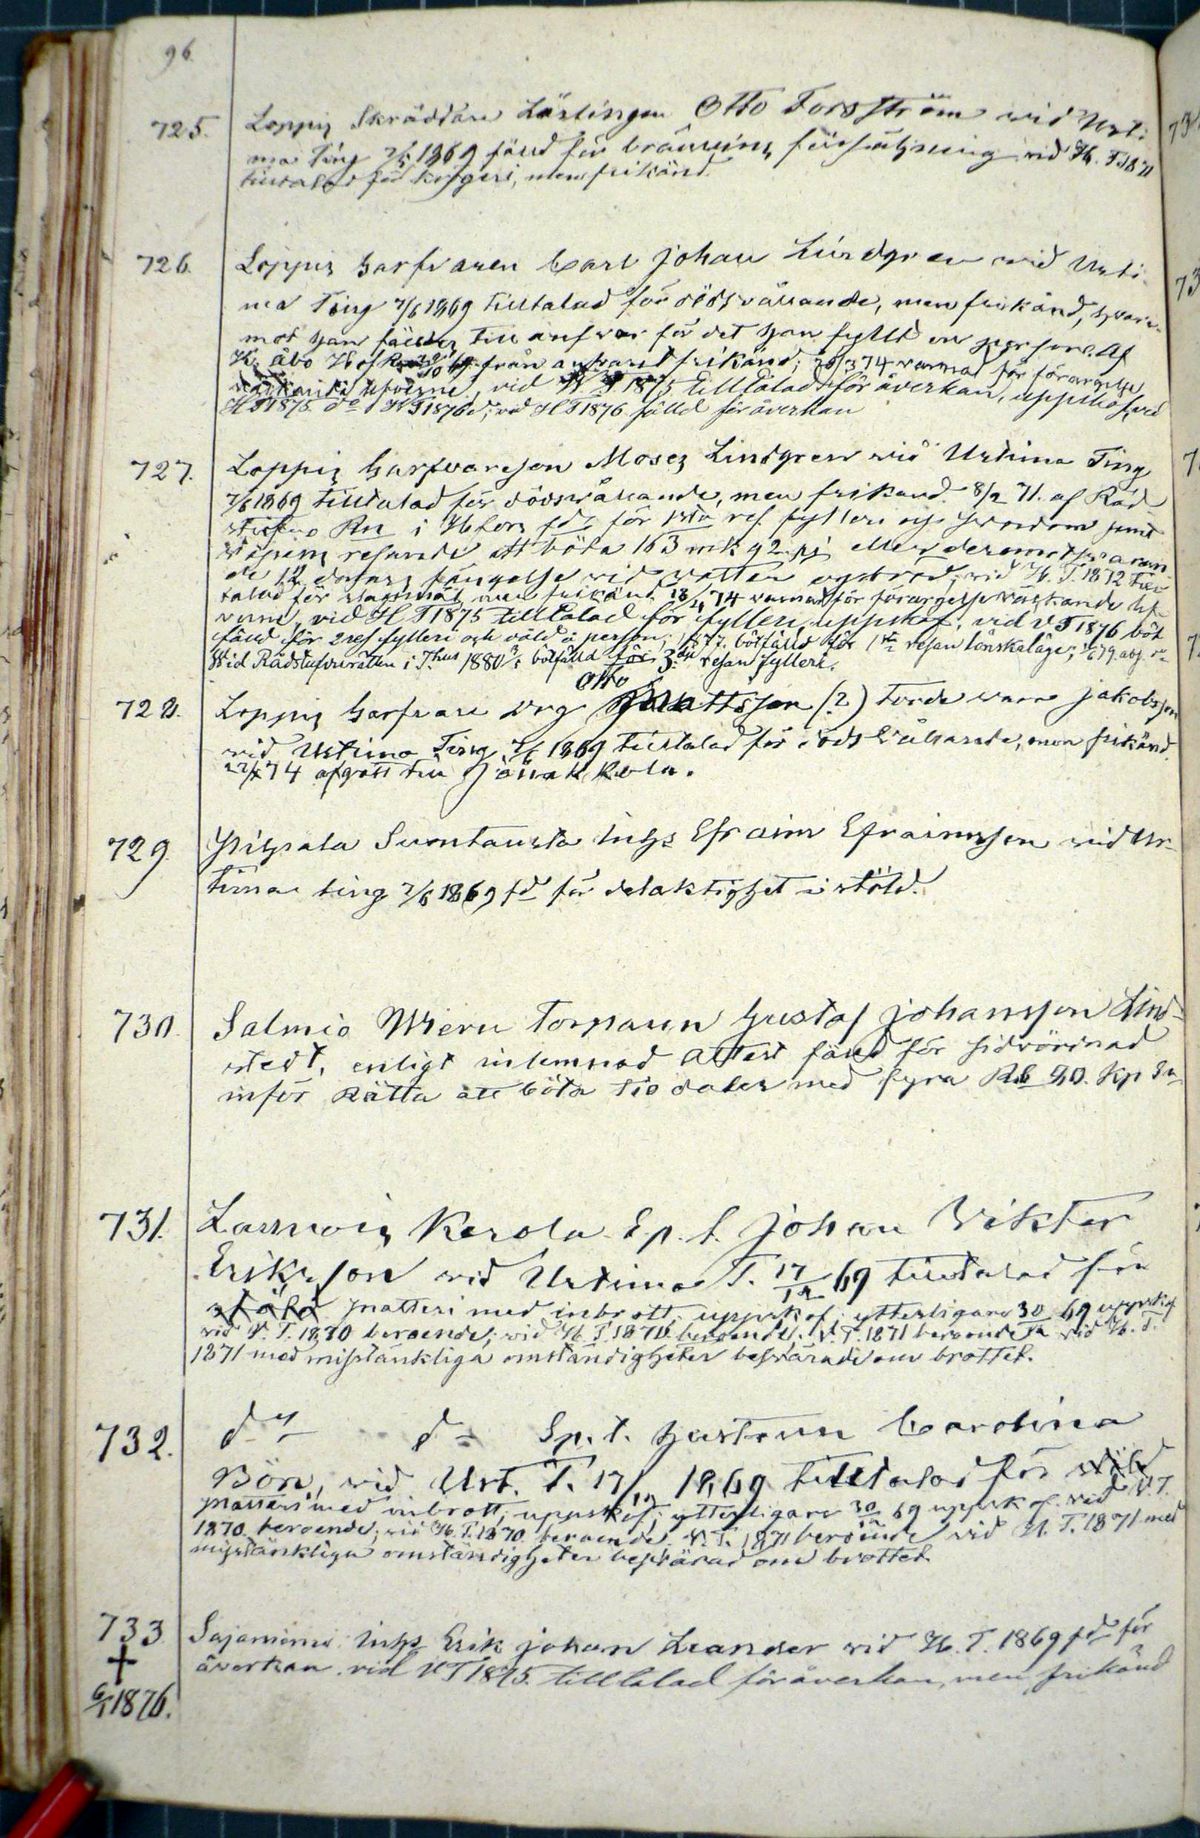 96
725. Loppis Skräddare Lärlingen Otto Forsström wid Urti-
ma Ting 7/6 1869 fäld för bränvins försäljning wid H. T. 1870
tilltalad för krögeri, men frikänd.
726. Loppis Garfvaren Carl Johan Lindgren wid Urti-
ma Ting 7/6 1869 tilltalad för dödsvållande, men frikänd, hvare-
mot han fäldes till ansvar för det han fylld en person. Af
K. Åbo Hof R från ansvaret frikänd; 20/3 74 warnad för förargelse
väckande lefverne, vid H T 1875 tilltalad för åverkan, uppskof, vid
H T 1875 do V T 1876 d; vid H T 1876 fälld för åverkan
727. Loppis Garfvareson Moses Lindgren wid Urtima Ting
7/6 1869 tilltalad för dödsvållande, men frikänd. 8/2 71. af Råd
stufvu Rn i H:fors fd för 1sta res. fylleri och swordom samt
wåpens refsande att böta 163 mk 92 pi eller deremot swaran
de 12 dagars fängelse wid watten och bröd, wid H. T. 1872 till
talad för slagsmål men frikänd 18/4 74 warnad för förargelse väckande lef-
verne, vid H T 1875 tilltalad för fylleri, uppskof, vid V T 1876 böt
fäld för 2 res fylleri och våld å person; 77. bötfälld för 1sta resan lönskaläge;
Wid Rådstufvurätten i T:hus 1880 bötfälld för 3:dje resan fylleri.
728. Loppis Garfvare drg Otto Mattsson (?) torde vara Jakobsson
wid Urtima Ting 7/6 1869 tilltalad för dödsvållande, men frikänd.
22/4 74 afgått till Janakkala.
729. Pilpala Suontausta Inhs Efraim Efraimsson wid Ur-
tima ting 7/6 1869 fd för delaktighet i stöld.
730. Salmis Wieru Torparen Gustaf Johansson Lind-
stedt, enligt inlemnad attest fäld för sidvördnad
inför Rätta att böta tio daler med fyra Rb 90. Kp Sr
731. Launois Kerola Sp. t. Johan Wiktor
Eriksson wid Urtima T. 17/12 69 tilltalad för
stöld snatteri med inbrott, uppskof; ytterligare 30/12 69 uppskof
vid V. T. 1870 beroende; wid H. T. 1870 beroende. V. T. 1871 beroende wid H. T.
1871 med misstänkliga omständigheter besvärad om brottet.
732. do do Sp. t. Hustrun Carolina
Bön, wid Urt. T. 17/12 1869 tilltalad för stöld
snatteri med inbrott, uppskof; ytterligare 30/12 69 uppskof wid V. T.
1870 beroende; wid H. T. 1870 beroende V. T. 1871 beroende wid H. T. 1871 med
misstänkliga omständigheter besvärad om brottet.
733 Sajaniemi Inhs Erik Johan Leander wid H. T. 1869 fd för
åverkan. vid V T 1875. tilltalad för åverkan, men frikänd
†
6/1 1876.